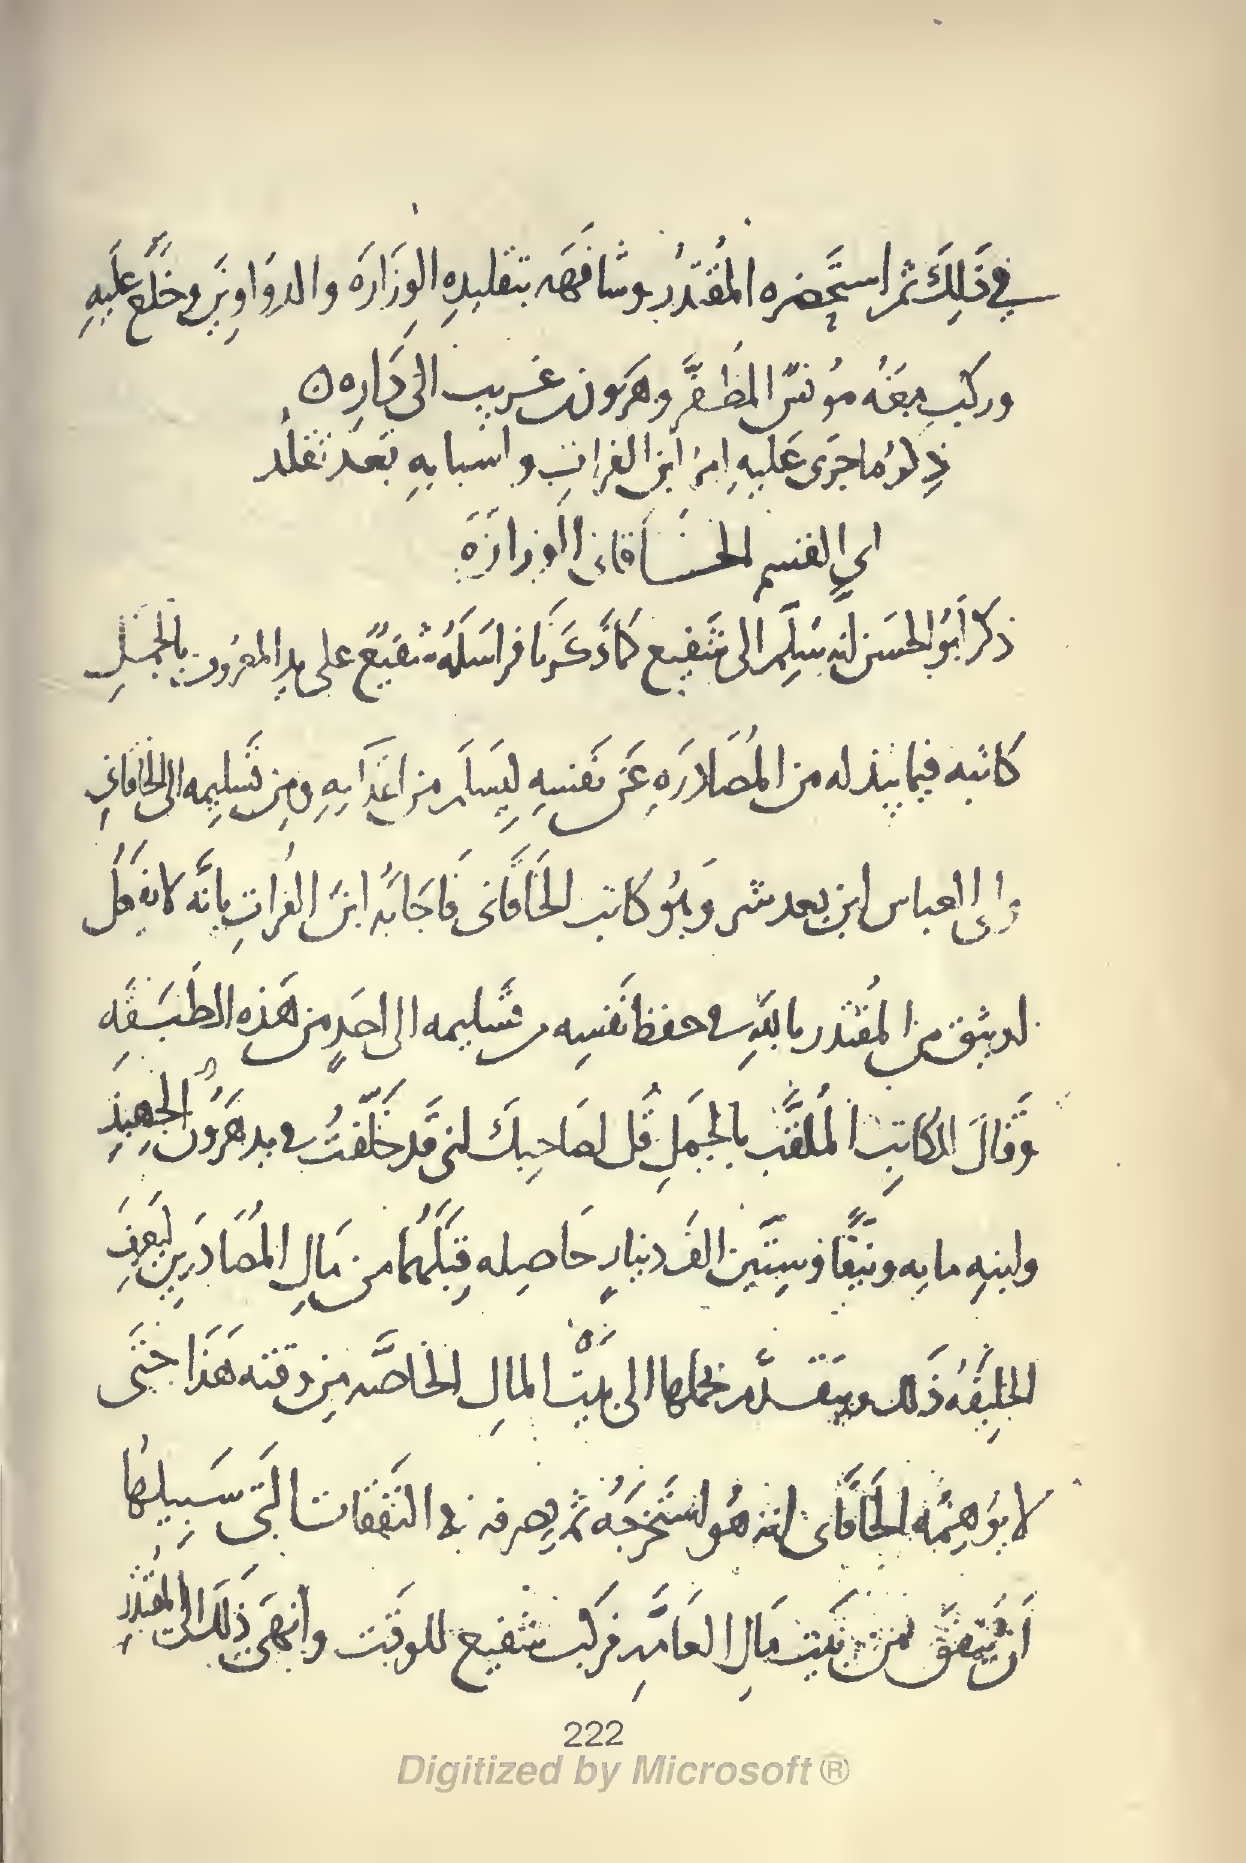 في ذَلِكَ ثم استَحضره المُقتدُر وشافَهَه بتقليدِه الوِزَارَه والدوَاوِين وخَلَع عَليهِ
وركبَ مَعَهُ مُونسٌ المُظَفَّر وهَرون بن غَريب الى دَارِه ن
ذِكرُ ما جَرَى عَليهِ امرُ ابن الفراتِ واسبابهِ بَعدَ تقلُّد
ابي القسم الخَاقاني الوزارَةَ
ذَكرَ أبُو الحسَن انه سُلِّم الى شَفِيع كما ذَكَرنا فراسَلَهُ شفيعٌ على يدِ المعرُوف بالجَمَلِ
كاتبه فيما يبذله من المُصَادرَهِ عَن نَفسِهِ ليَسلَم من اعدَايِهِ ومِن تَسليمِه الى الخاقاني
والى العباس ابن بعد شر وَهُو كاتب الخَاقَانى فَاجَابَهُ ابنُ الفُراتِ بانَّه لا يَفعَلُ
او يثق من المُقتدر باللهِ في حفظ نَفسِه من تَسليمه الى احَدٍ من هَذِه الطَبَقَه
وَقَالَ للكاتِب المُلقَّب بالجَمَلِ قُل لصَاحِبِكَ انى قَد خَلَّفتُ في يد هَرُون الجهبذِ
وابنِهِ مايه ونَيِّفًا وسِتِّين الف دينارٍ حَاصِله قِبَلَهُما من مَالِ المُصَادَرِين لِيَعرِفَ
الخليفَهُ ذَلك ويتقدَّم بحَملها الى بَيتِ المال الخاصَّه مِن وقته هَذا حَتَّى
لا يُوهِمَه الخَاقَانى انه هُو استَخرجَهُ ثم يصرفه في النَفقات التى سَبِيلها
أن تُنفَقَ من بَيت مَالِ العَامَّهِ فركبَ شفيع للوَقت وانهَى ذَلكَ الى المُقتَدِر
222
Digitized by Microsoft ®